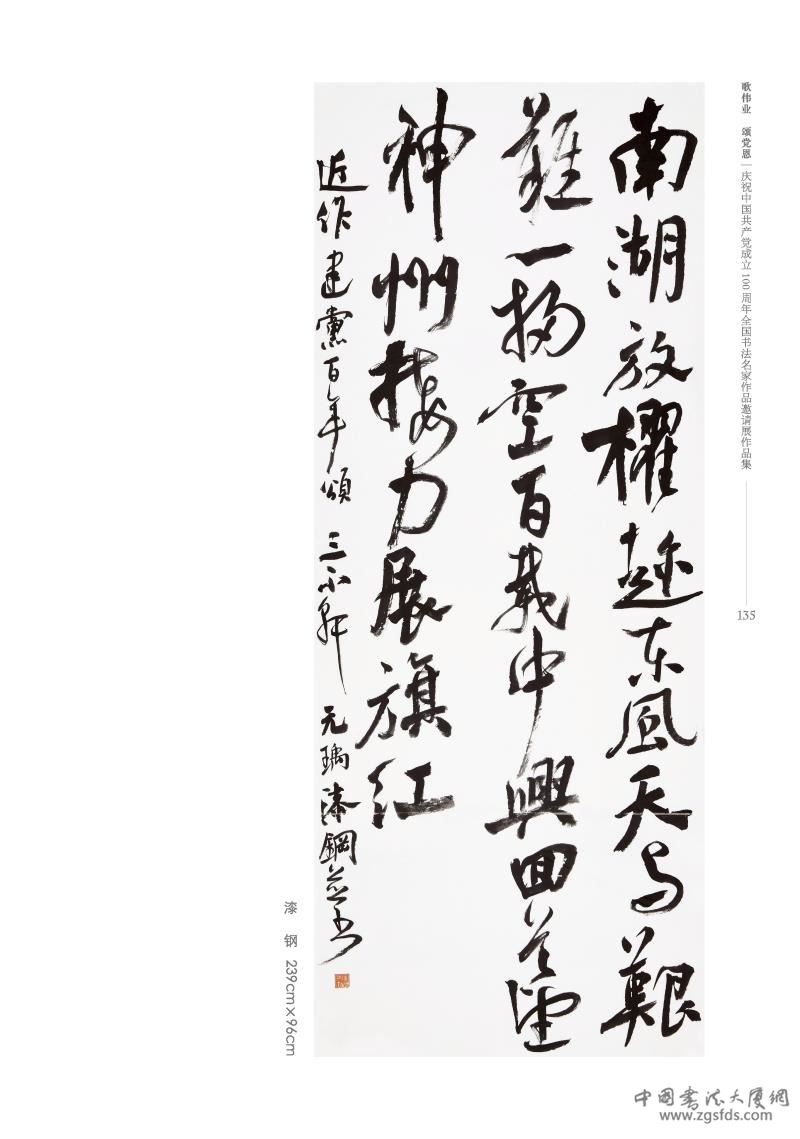 歌伟业 颂党恩 | 庆祝中国共产党成立100周年全国书法名家作品邀请展作品集
135
南湖放櫂趁东風天与艱
難一掃空百载中興回首望
神州接力展旗红
近作建黨百年頌 三不轩 漆鋼并书
漆 钢 239cm×96cm
中国书法大厦網
www.zgsfds.com